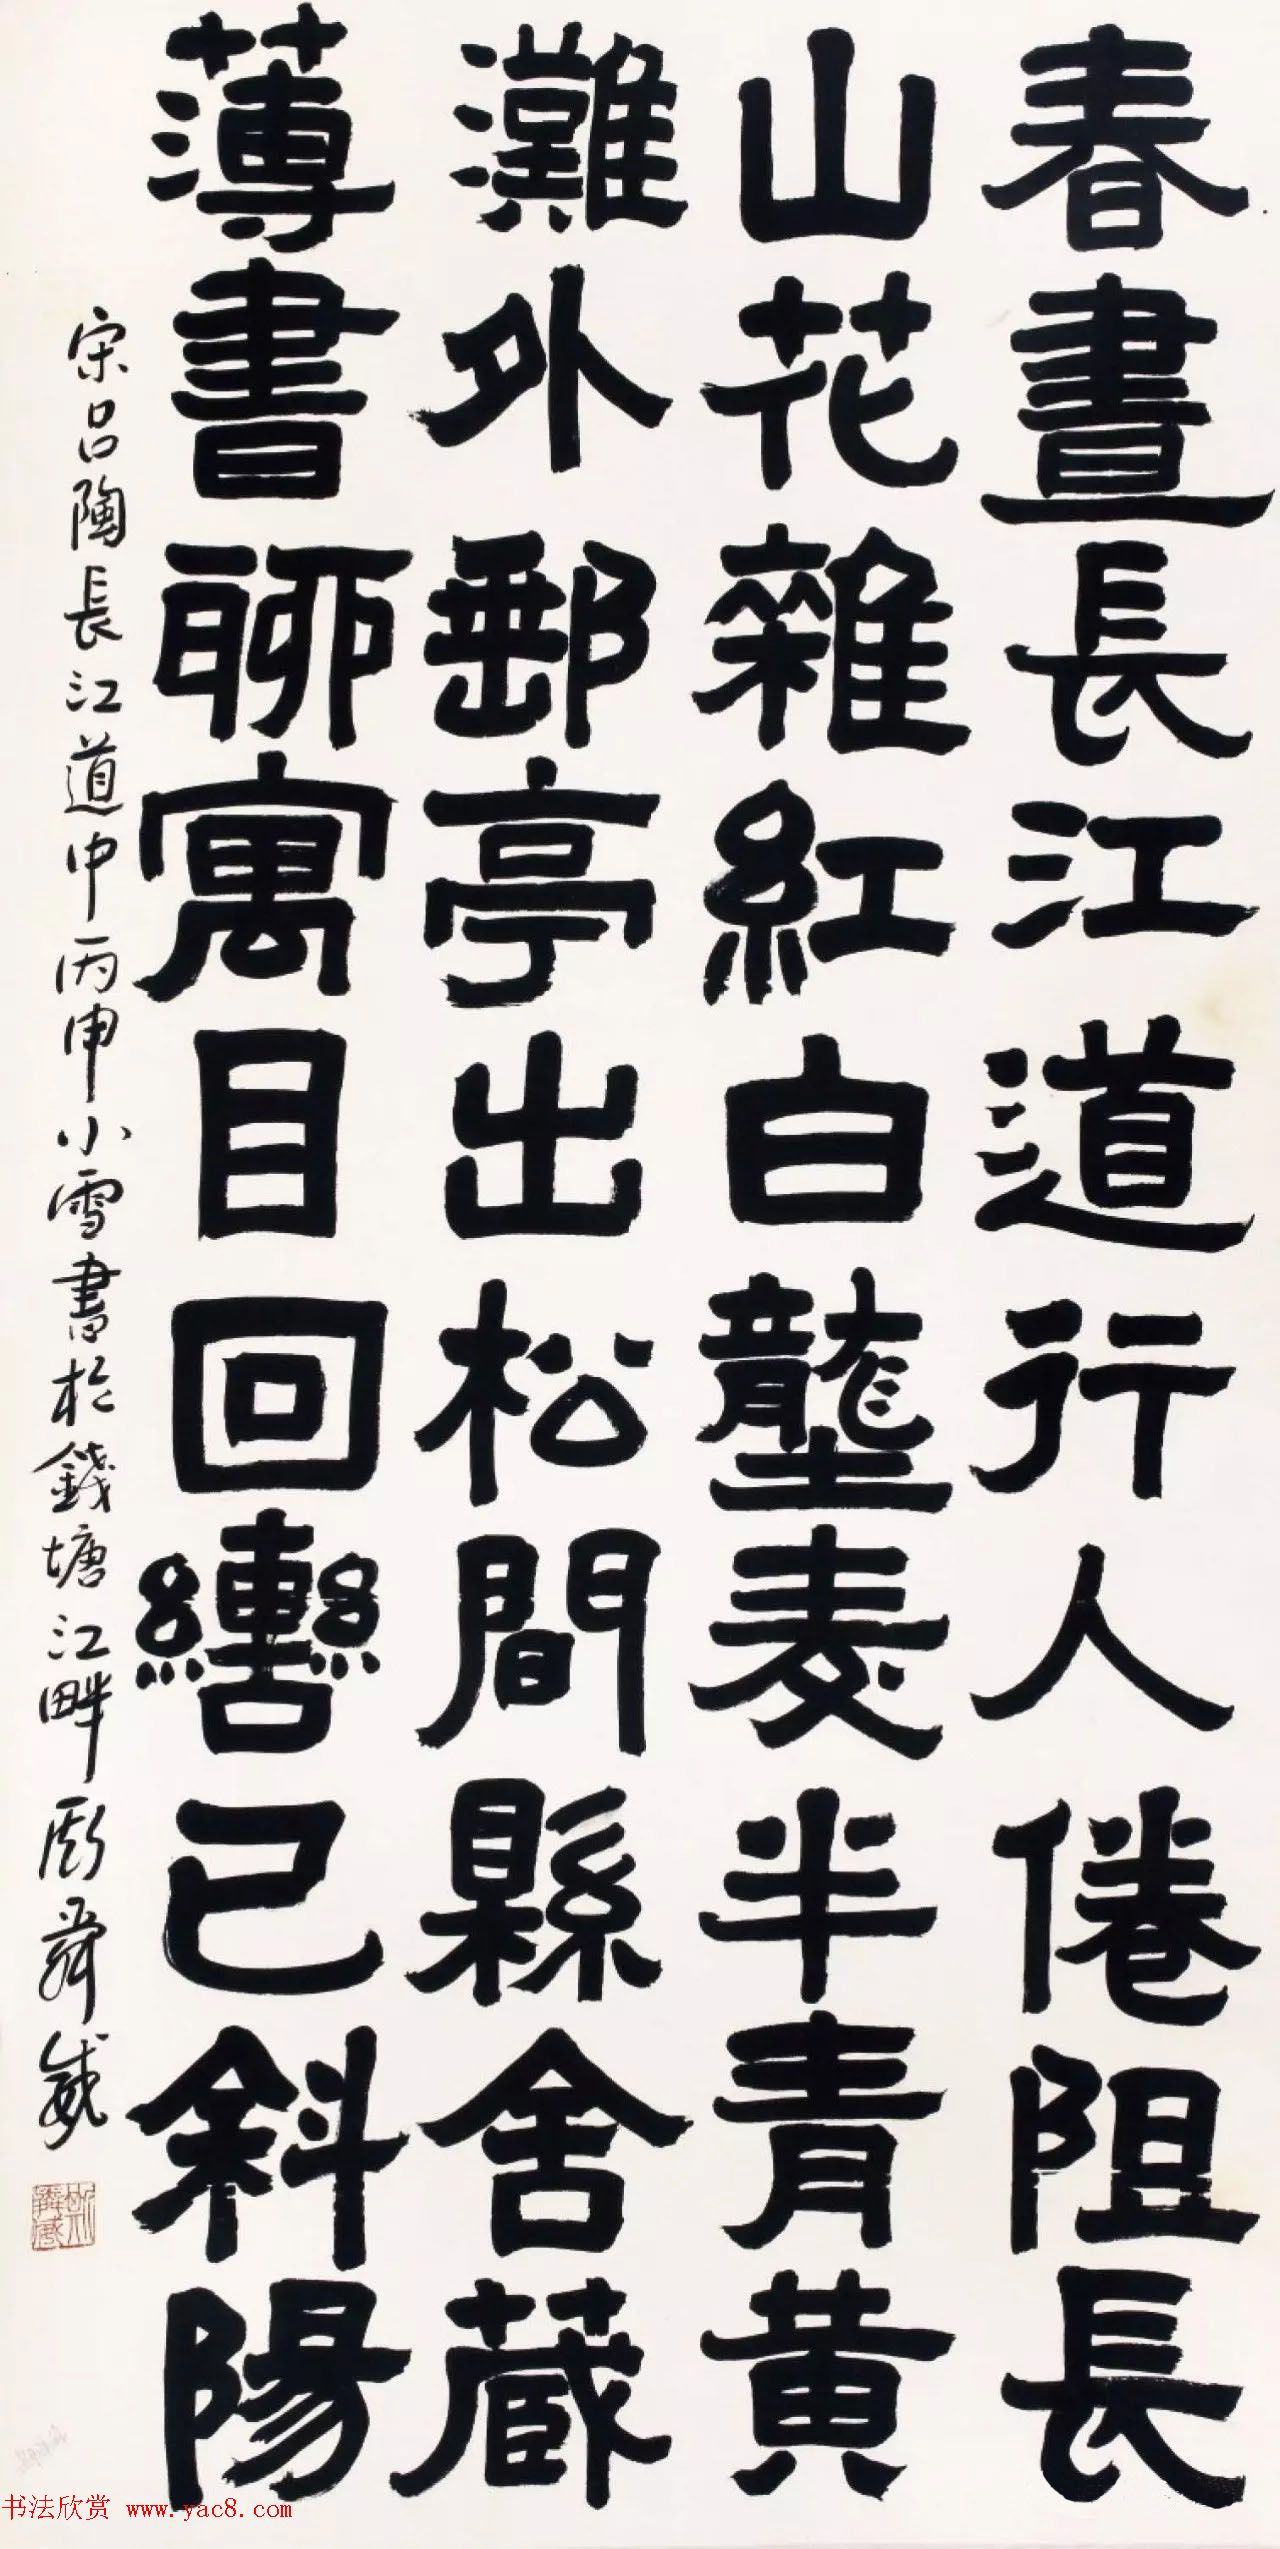 春晝長江道行人倦阻長
山花雜紅白壟麦半青黄
灘外郵亭出松間縣舍蔵
薄書聊寓目回轡已斜陽
宋吕陶長江道中丙申小雪書於錢塘江畔斯舜威
斯舜威
书法欣赏 www.yac8.com